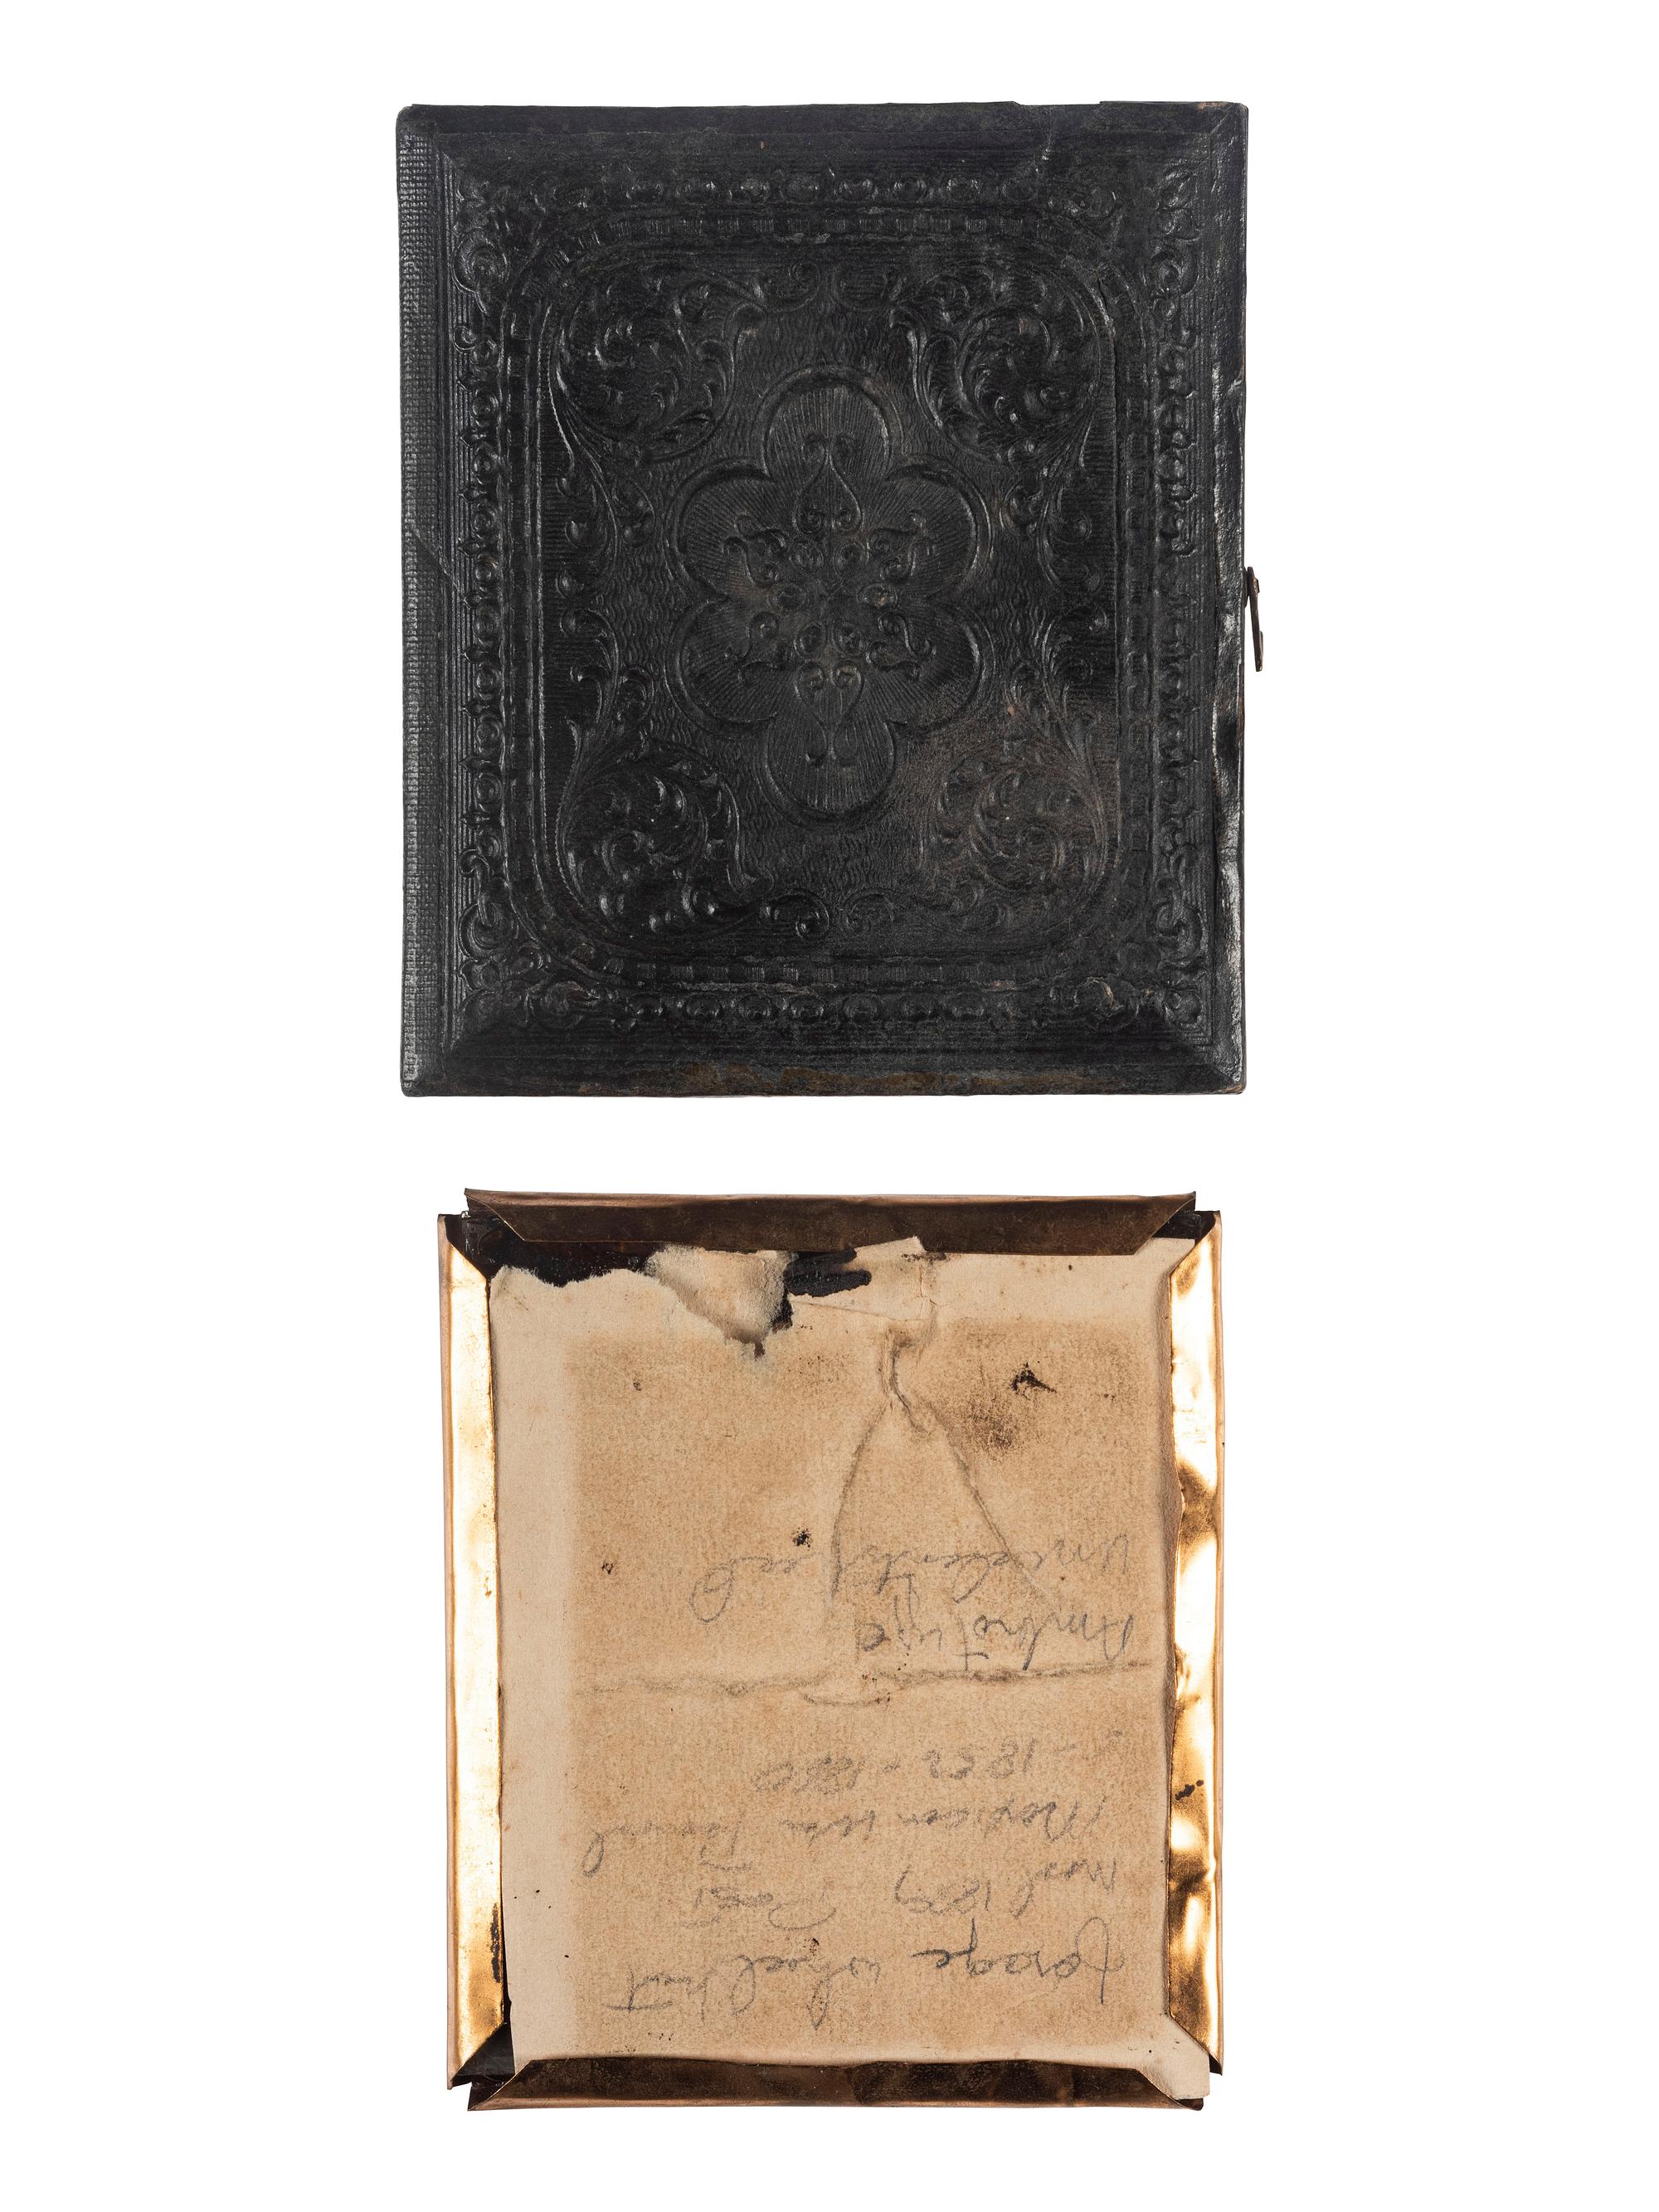 forage wheel hat
Mod 1839 Post
Mexican War Period
- 1852 - 1860
Ambrotype
Unidentified